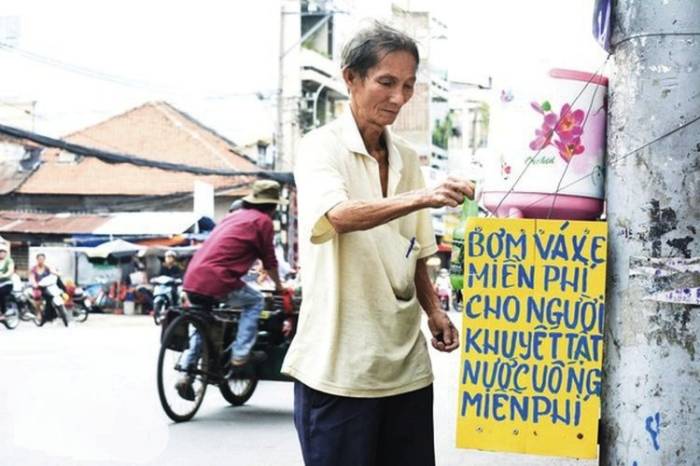 Orchid
BƠM VÁ XE
MIỄN PHÍ
CHO NGƯỜI
KHUYẾT TẬT
NƯỚC UỐNG
MIỄN PHÍ